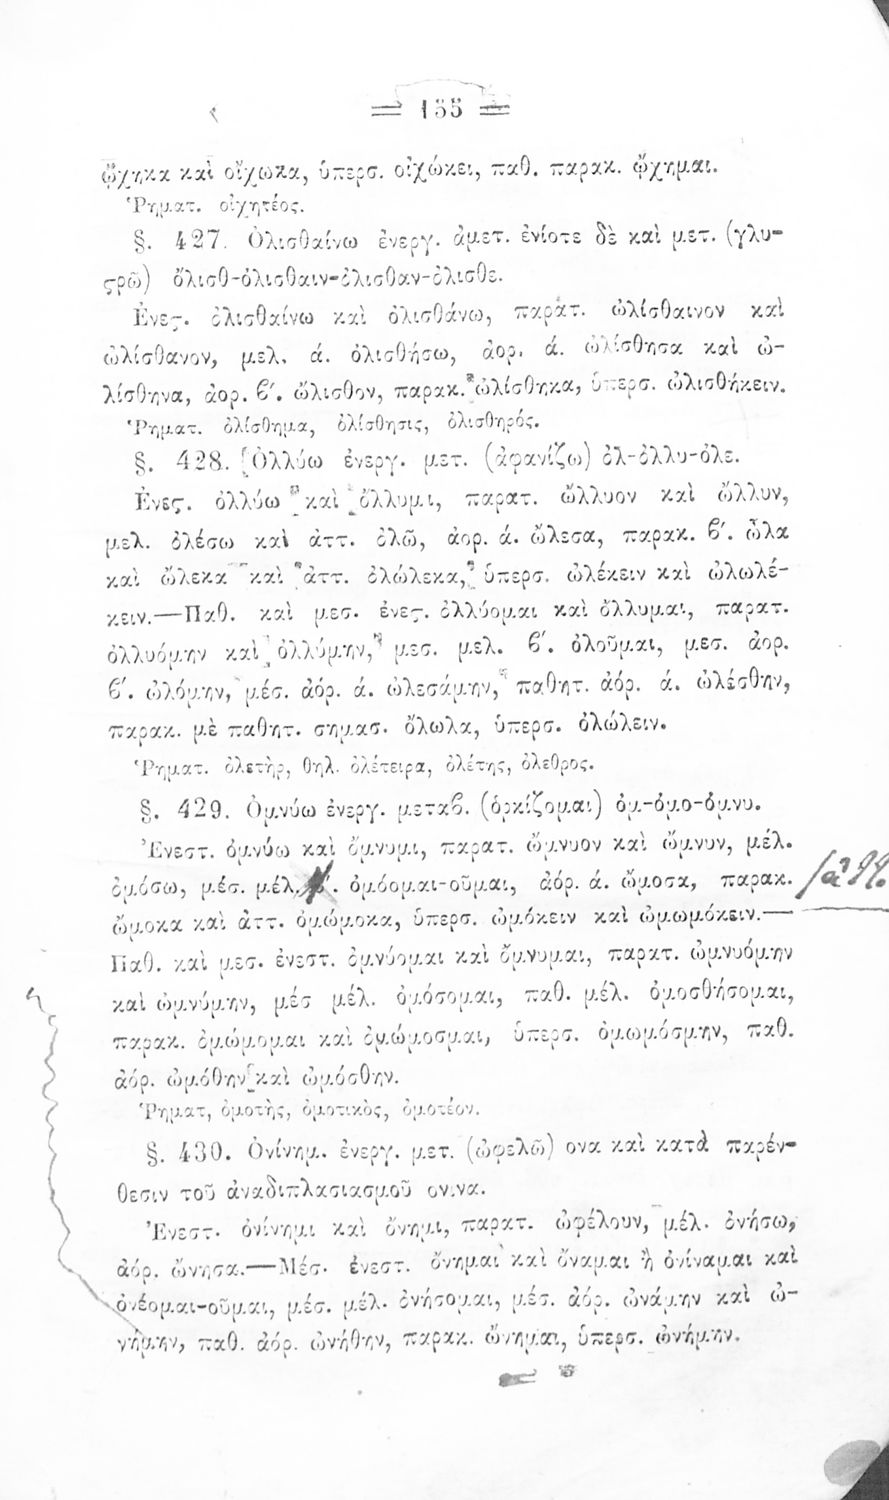 = 155 =
ᾤχηκα καὶ οἴχωκα, ὑπερσ. οἰχώκει, παθ. παρακ. ᾤχημαι.
Ῥηματ. οἰχητέος.
§. 427. Ὀλισθαίνω ἐνεργ. ἀμετ. ἐνίοτε δὲ καὶ μετ. (γλυ-
ςρῶ) ὄλισθ-ὀλισθαιν-ὀλισθαν-ὀλισθε.
Ἐνεϛ. ὀλισθαίνω καὶ ὀλισθάνω, παρατ. ὠλίσθαινον καὶ
ὠλίσθανον, μελ. ά. ὀλισθήσω, ἀορ. ά. ὠλίσθησα καὶ ὠ-
λίσθηνα, ἀορ. β΄. ὤλισθον, παρακ. ὠλίσθηκα, ὑπερσ. ὠλισθήκειν.
Ῥηματ. ὀλίσθημα, ὀλίσθησις, ὀλισθηρός.
§. 428. Ὀλλύω ἐνεργ. μετ. (ἀφανίζω) ὀλ-ὀλλυ-ὀλε.
Ἐνεϛ. ὀλλύω καὶ ὄλλυμι, παρατ. ὤλλυον καὶ ὤλλυν,
μελ. ὀλέσω καὶ ἀττ. ὀλῶ, ἀορ. ά. ὤλεσα, παρακ. β΄. ὦλα
καὶ ὤλεκα καὶ ἀττ. ὀλώλεκα, ὑπερσ. ὠλέκειν καὶ ὠλωλέ-
κειν.—Παθ. καὶ μεσ. ἐνεϛ. ὀλλύομαι καὶ ὄλλυμαι, παρατ.
ὀλλυόμην καὶ ὀλλύμην, μεσ. μελ. β΄. ὀλοῦμαι, μεσ. ἀορ.
β΄. ὠλόμην, μέσ. ἀόρ. ά. ὠλεσάμην, παθητ. ἀόρ. ά. ὠλέσθην,
παρακ. μὲ παθητ. σημασ. ὄλωλα, ὑπερσ. ὀλώλειν.
Ῥηματ. ὀλετὴρ, θηλ. ὀλέτειρα, ὀλέτης, ὀλεθρος.
§. 429. Ὀμνύω ἐνεργ. μεταβ. (ὁρκίζομαι) ὀμ-ὀμο-ὀμνυ.
Ἐνεστ. ὀμνύω καὶ ὄμνυμι, παρατ. ὤμνυον καὶ ὤμνυν, μέλ.
ὀμόσω, μέσ. μέλ. β΄. ὀμόομαι-οῦμαι, ἀόρ. ά. ὤμοσα, παρακ.
ὤμοκα καὶ ἀττ. ὀμώμοκα, ὑπερσ. ὠμόκειν καὶ ὠμωμόκειν.—
Παθ. καὶ μεσ. ἐνεστ. ὀμνύομαι καὶ ὄμνυμαι, παρατ. ὠμνυόμην
καὶ ὠμνύμην, μέσ μέλ. ὀμόσομαι, παθ. μέλ. ὀμοσθήσομαι,
παρακ. ὀμώμομαι καὶ ὀμώμοσμαι, ὑπερσ. ὀμωμόσμην, παθ.
ἀόρ. ὠμόθην καὶ ὠμόσθην.
Ῥηματ, ὀμοτὴς, ὀμοτικὸς, ὀμοτέον.
§. 430. Ὀνίνημ. ἐνεργ. μετ. (ὠφελῶ) ονα καὶ κατὰ παρέν-
θεσιν τοῦ ἀναδιπλασιασμοῦ ονινα.
Ἐνεστ. ὀνίνημι καὶ ὄνημι, παρατ. ὠφέλουν, μέλ. ὀνήσω,
ἀόρ. ὤνησα.—Μέσ. ἐνεστ. ὄνημαι καὶ ὄναμαι ἢ ὀνίναμαι καὶ
ὀνέομαι-οῦμαι, μέσ. μέλ. ὀνήσομαι, μέσ. ἀόρ. ὠνάμην καὶ ὠ-
νήμην, παθ. ἀόρ. ὠνήθην, παρακ. ὤνημαι, ὑπερσ. ὠνήμην.